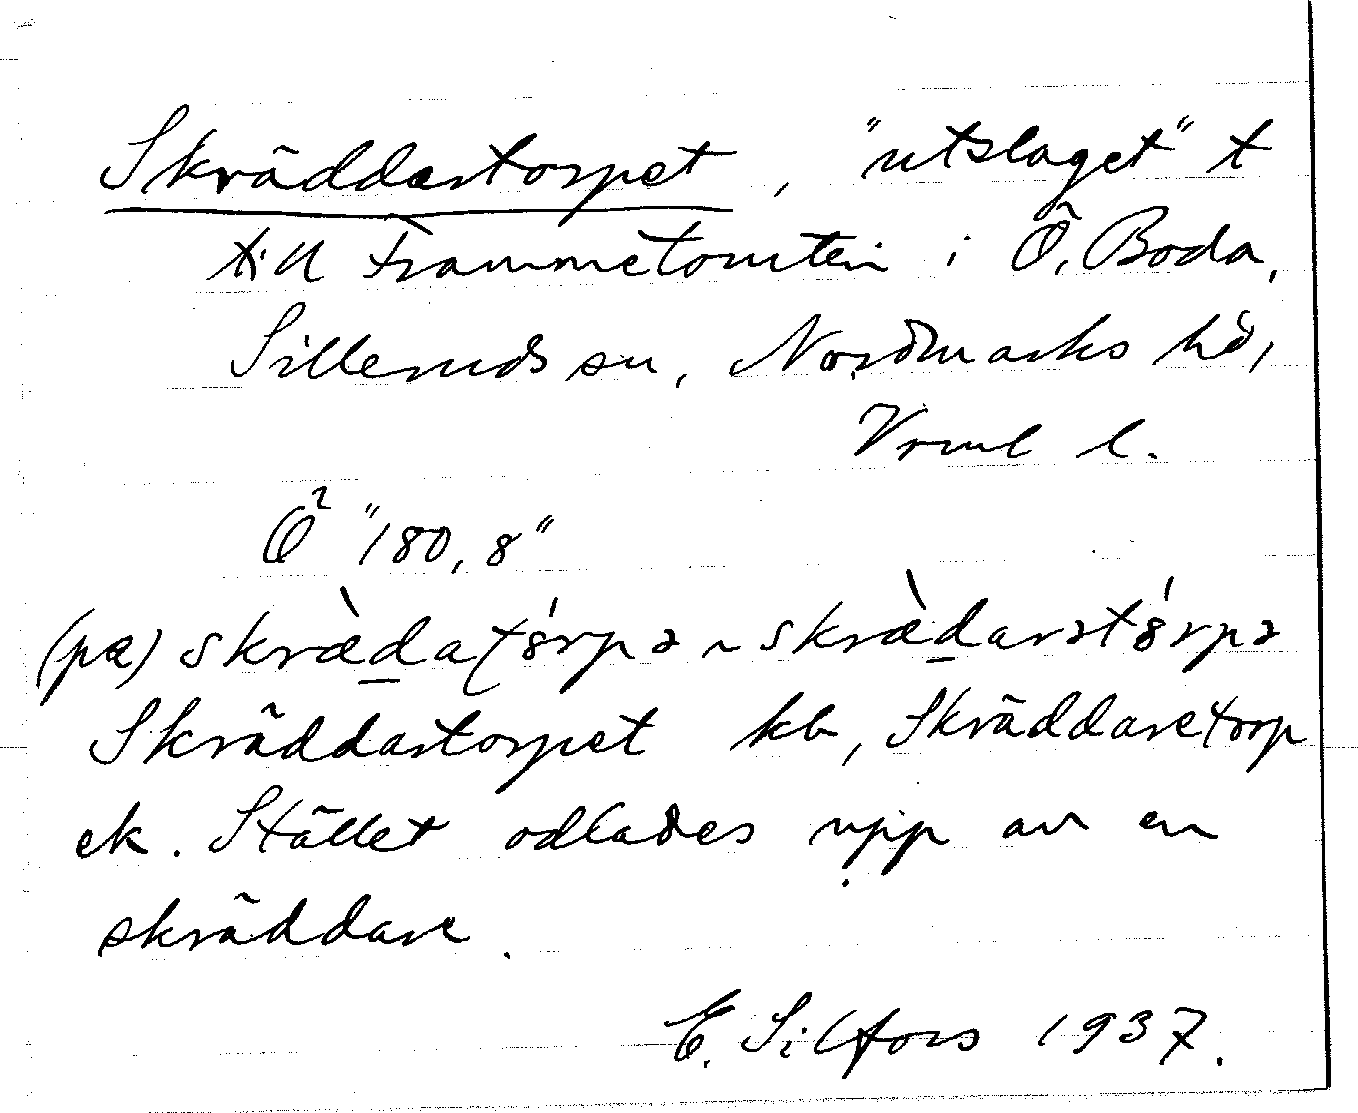 Skräddartorpet, "utslaget" t
till Frammetomten i Ö. Boda,
Silleruds sn, Nordmarks hd,
Vrml l.
Ö² "180,8"
(pæ) skræ̀daṭ8́rpə ~ skræ̀darət8́rpə
Skräddartorpet kb, Skräddaretorp
ek. Stället odlades upp av en
skräddare.
E. Silfors 1937.